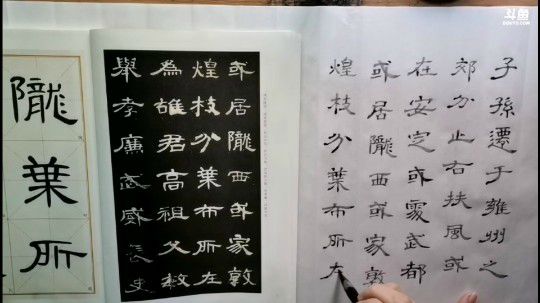 子孫遷于雍州之
郊分止右扶風或
在安定或處武都
或居隴西或家敦
煌枝分葉布所
或居隴西或家敦
煌枝分葉布所在
為雄君高祖父敏
舉孝廉武威長史
隴葉所
斗鱼
DOUYU.COM